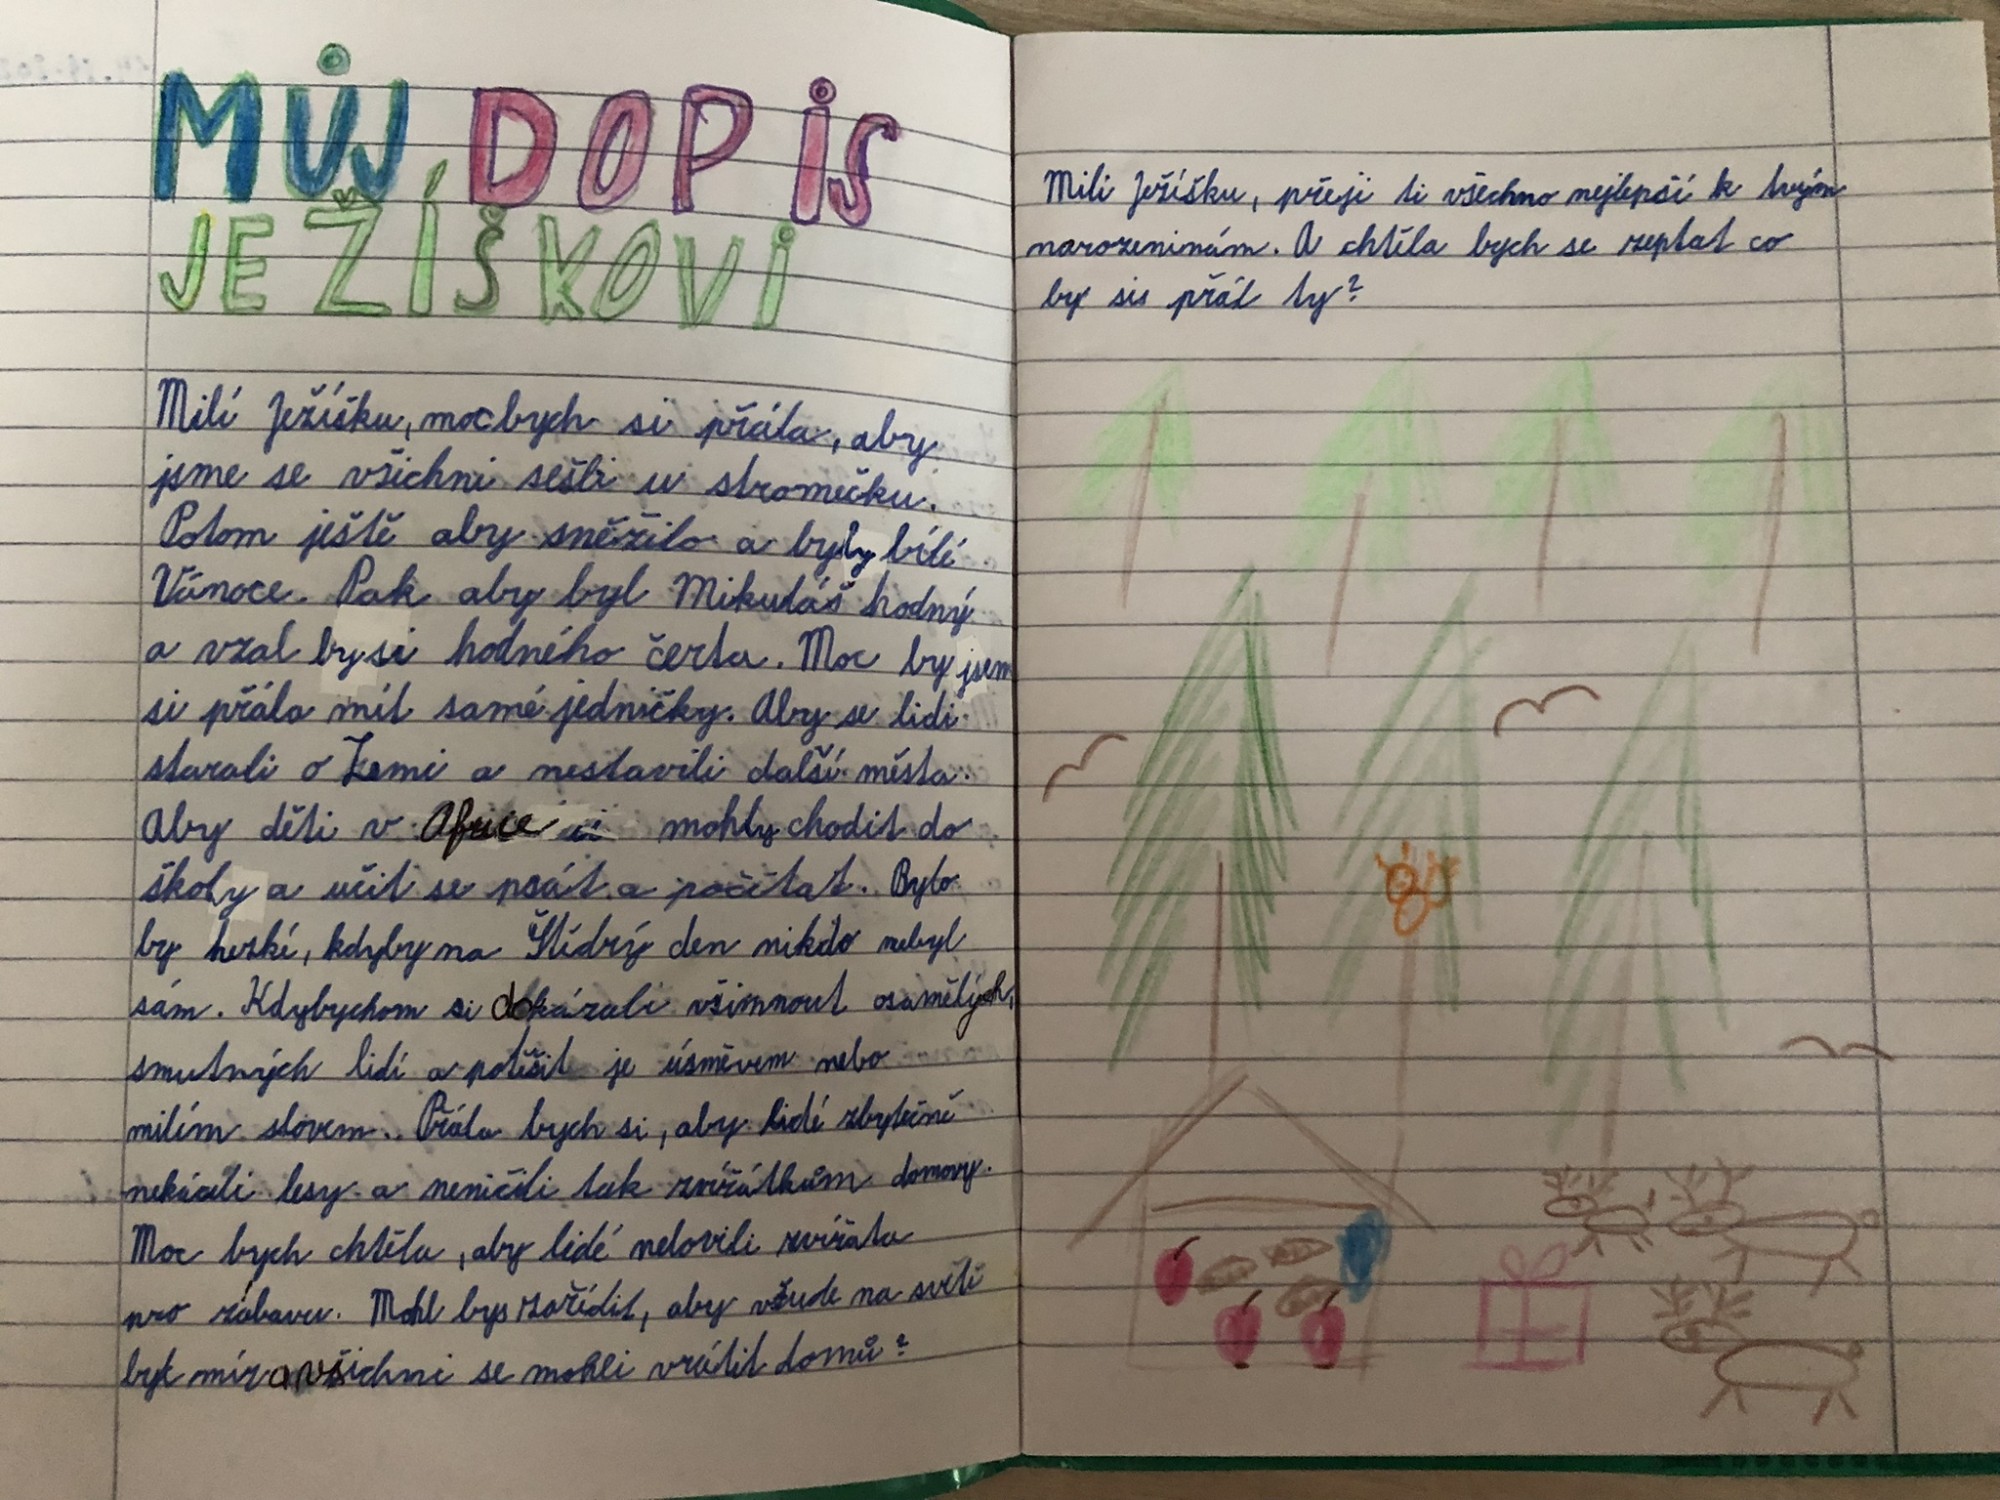 MŮJ DOPIS
JEŽÍŠKOVI
Milí Ježíšku, moc bych si přála, aby
jsme se všichni sešli u stromečku.
Potom ještě aby sněžilo a byly bílé
Vánoce. Pak aby byl Mikuláš hodný
a vzal by si hodného čerta. Moc by jsem
si přála mít samé jedničky. Aby se lidi
starali o Zemi a nestavili další města.
Aby děti v Africe mohly chodit do
školy a učit se psát a počítat. Bylo
by hezké, kdyby na Štědrý den nikdo nebyl
sám. Kdybychom si dokázali všimnout osamělých,
smutných lidí a potěšit je úsměvem nebo
milím slovem. Přála bych si, aby lidé zbytečně
nekáceli lesy a neničili tak zvířátkům domovy.
Moc bych chtěla, aby lidé nelovili zvířata
pro zábavu. Mohl bys zařídit, aby všude na světě
byl mír a všichni se mohli vrátit domů?
Milí Ježíšku, přeji ti všechno nejlepší k tvým
narozeninám. A chtěla bych se zeptat co
by sis přál ty?